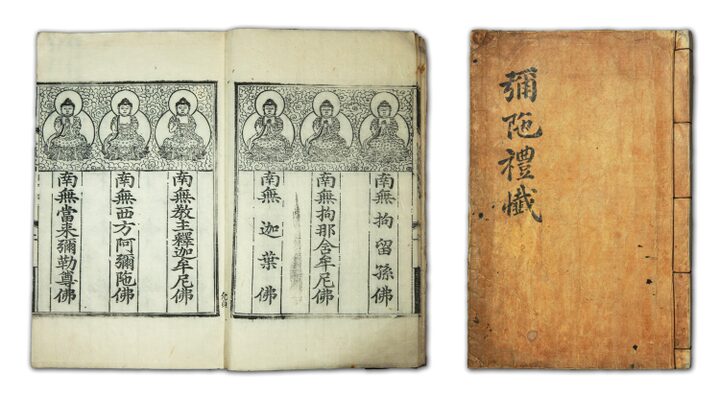 南無拘留孫佛
南無拘那舍牟尼佛
南無迦葉佛
南無教主釋迦牟尼佛
南無西方阿彌陁佛
南無當来彌勒尊佛
彌陁禮懺